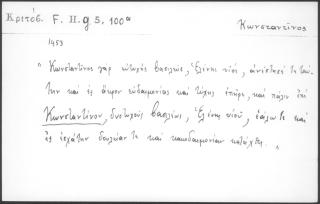 Κριτόβ. F. H. g 5, 100ᵃ
Κωνσταντῖνος
1453
"Κωνσταντῖνος γὰρ εὐτυχὴς βασιλεύς, Ἑλένης υἱός, ἀνίστησι ταύ-
την καὶ ἐς ἄκρον εὐδαιμονίας καὶ τύχης ἐπῆρε, καὶ πάλιν ἐπὶ
Κωνσταντίνου, δυστυχοῦς βασιλέως, Ἑλένης υἱοῦ, ἑάλω τε καὶ
ἐς ἐσχάτην δουλείαν τε καὶ κακοδαιμονίαν κατῆχθη."